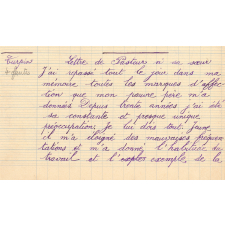 Lettre de Pasteur à sa sœur
J'ai repassé tout le jour dans ma
mémoire toutes les marques d'affec
tion que mon pauvre père m'a
données Depuis trente années j'ai été
sa constante et presque unique
préoccupation; Je lui dois tout. Jeune
il m'a éloigné des mauvaises fréquen
tations et m'a donné l'habitude du
travail et l'exemple de la